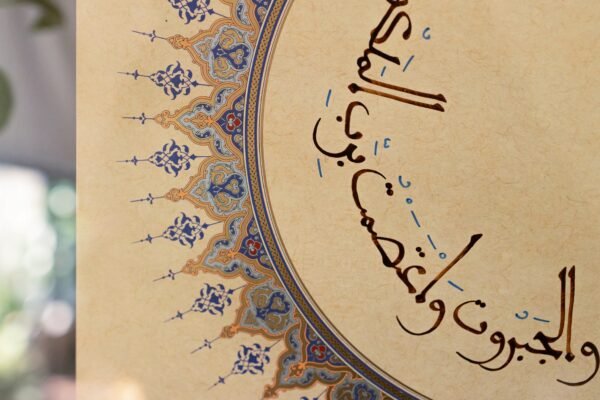 والجبروت واعتصمت برب الملكو